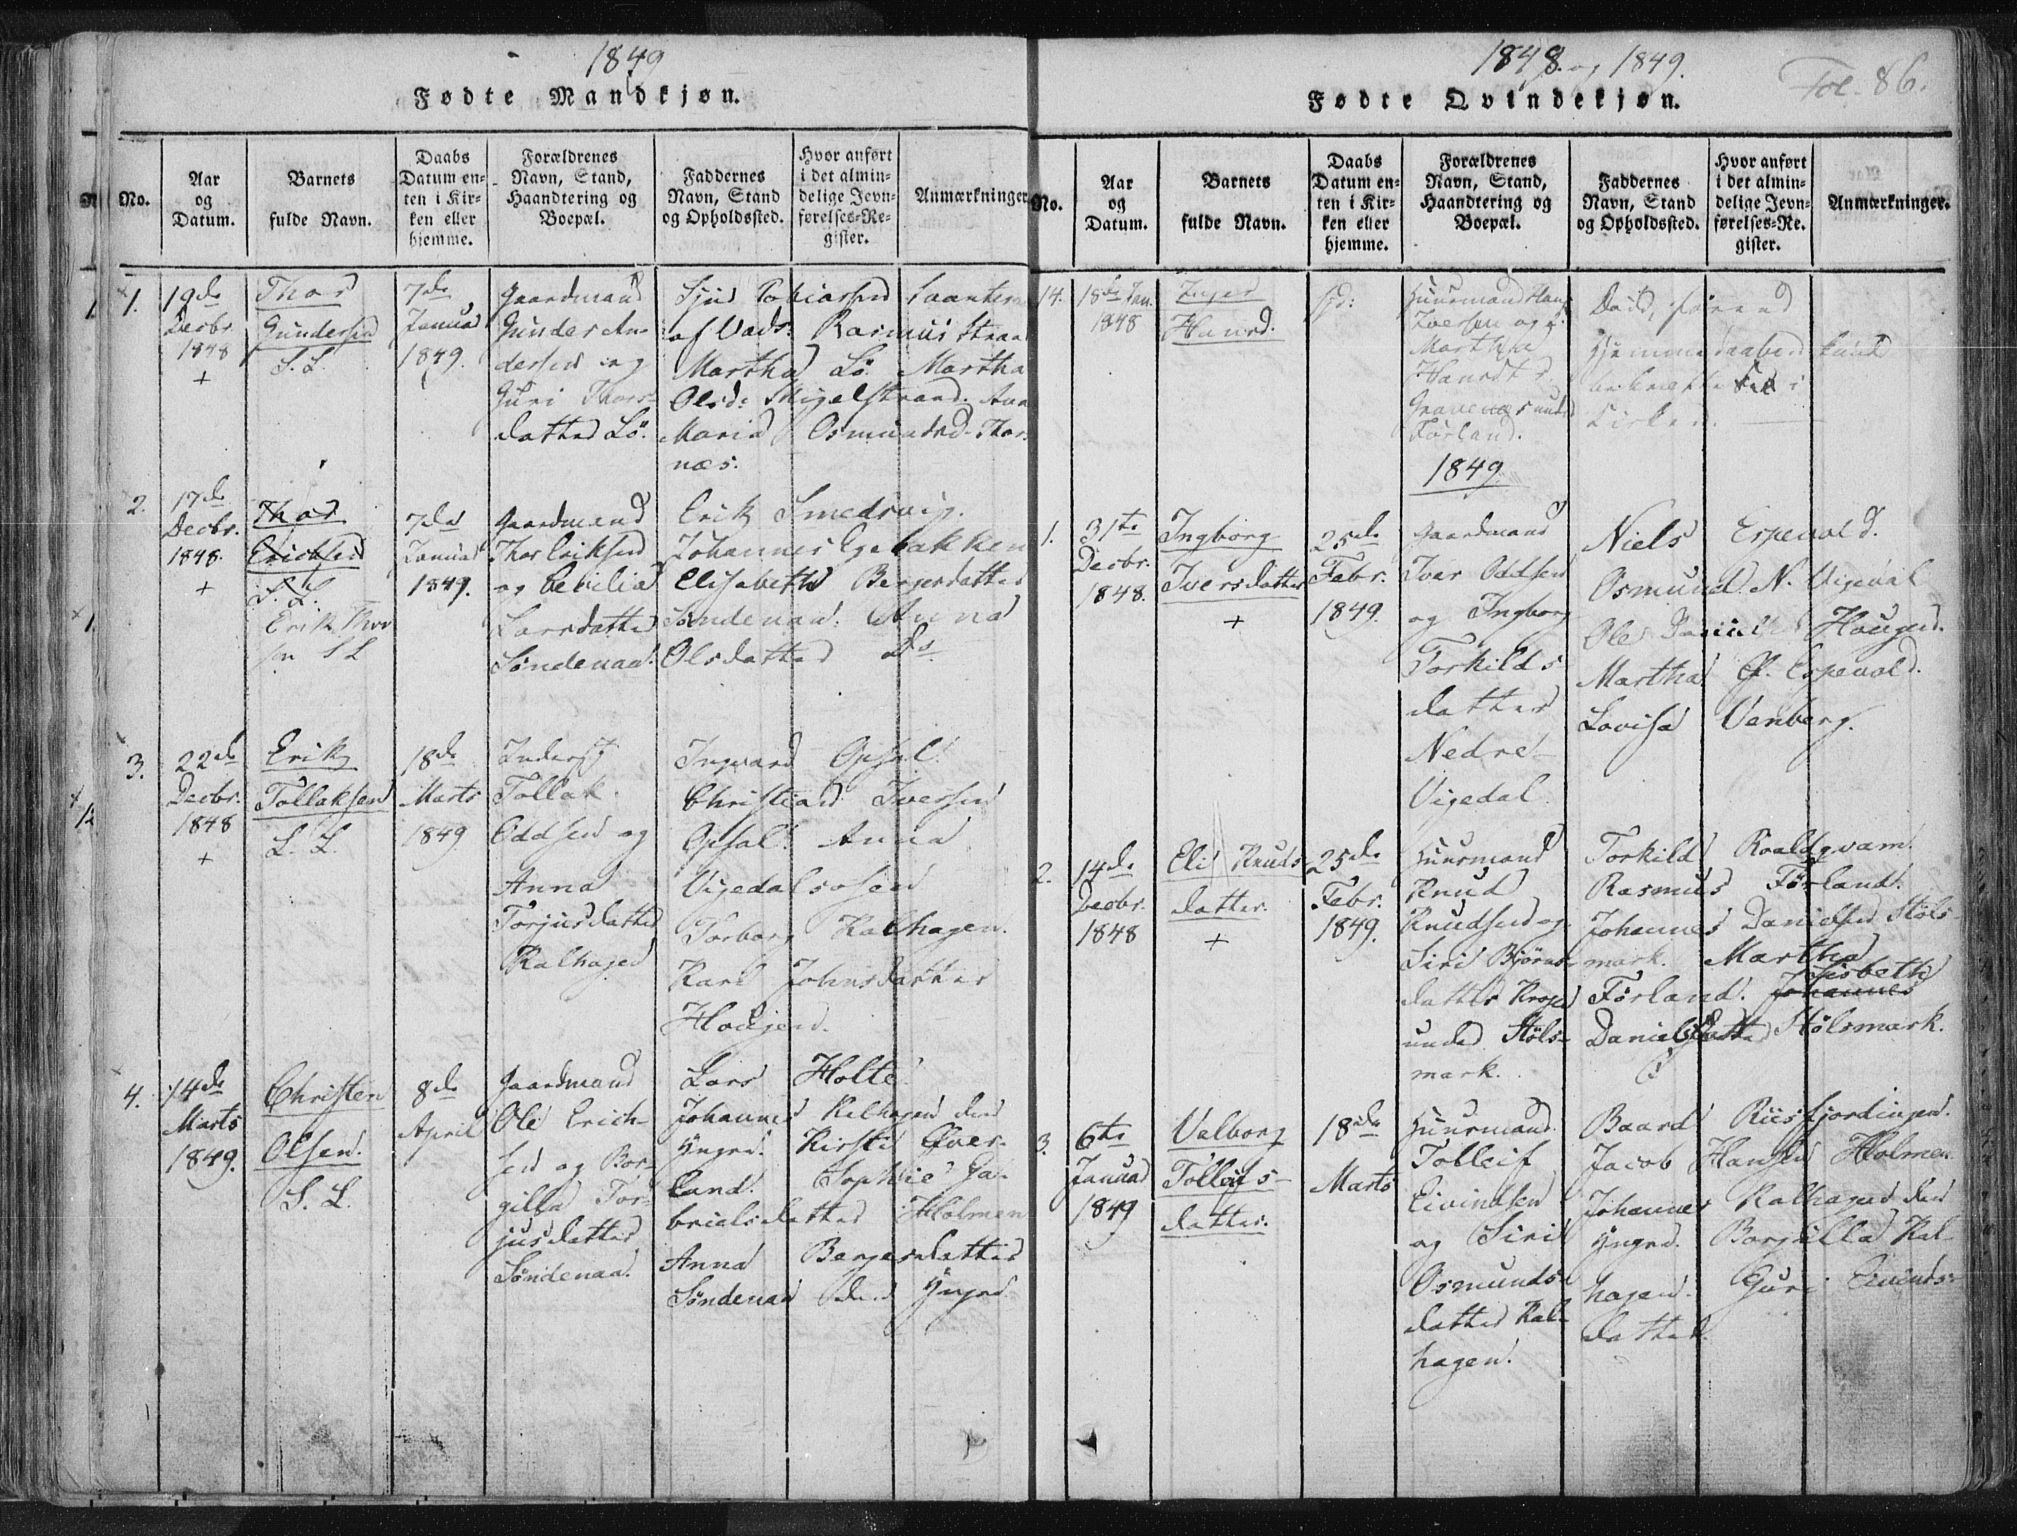 1849
Fødte Mandkjøn.
No.
Aar
og
Datum.
Barnets
fulde Navn.
Daabs
Datum en-
ten i Kir-
ken eller
hjemme.
Forældrenes
Navn, Stand,
Haandtering og
Boepæl.
Faddernes
Navn, Stand
og Opholdssted.
Hvor anført
i det almin-
delige Jevn-
førelses-Re-
gister.
Anmærkninger
1.
19de
Decbr.
1848
+
Thor
Gundersen
S. L.
7de
Januar
1849.
Gaardmand
Gunder An-
dersen og
Guri Thors-
datter Lö.
Sjur Tobiassen
af Vads. Rasmus
Martha Lö. Martha
Olsd: Migelstrand. Ann
Maria Osmundsd. Thor-
næs.
2.
17de
Decbr.
1848.
+
Thor
Ericksen
S. L.
Erik Thor
sen S L
7de
Januar
1849.
Gaardmand
Thor Eriksen
og Cecilia
Larsdatter
Søndenaa.
Erik Smedsvig.
Johannes Egebakken
Elisabeth Bergesdatter
Søndenaa. Anna
Olsdatter Ds.
3.
22de
Decbr.
1848
+
Erik
Tollaksen
S. L.
18de
Marts
1849
Inderst
Tollak
Oddsen og
Anna
Torjusdatter
Kalhagen
Ingvard Opsal.
Christian Iversen
Opsal. Anna
Vigedalsosen
Torborg Kalhagen.
Kari Johnsdatter
Hougen.
4.
14de
Marts
1849.
Christen
Olsen.
S. L.
8de
April
Gaardmand
Ole Erich-
sen og Bor-
gilla Tor-
jusdatter
Søndenaa.
Lars Holte.
Johannes Kalhagen den
Yngre. Kirsti Qver-
land. Sophie Ga-
brielsdatter Holmen
Anna Bergesdatter
Søndenaa den Yngre
1848 og 1849.
Fol. 86.
Fødte Qvindekjøn.
No.
Aar
og
Datum.
Barnets
fulde Navn.
Daabs
Datum en-
ten i Kir-
ken eller
hjemme.
Forældrenes
Navn, Stand,
Haandtering og
Boepæl.
Faddernes
Navn, Stand
og Opholdssted.
Hvor anført
i det almin-
delige Jevn-
førelses-Re.
gister.
Anmærkninger.
14.
18de Jan.
1848
Inger
Hansd.
Huusmand Hans
Iversen og
Marthe
Hansdtr
Gravenes under
Førland.
Død, førend
Hjemmedaaben kunde
bekræftes i
Kirken.
1849
1.
31te
Decbr.
1848.
Ingborg
Iversdatter
+
25de
Febr.
1849.
Gaardmand
Iver Oddsen
og Ingborg
Torkilds
datter
Nedre
Vigedal
Niels Espevold.
Osmund N. Vigedal
Ole Hougen.
Martha Espevold.
Lovisa Vanberg.
2.
14de
Decbr.
1848
Eli Knuds-
datter.
+
25de
Febr.
1849.
Huusmand
Knud
Knudsen og
Siri Björns-
datter
under Støls-
mark.
Torkild Roaldqvam.
Rasmus Førland.
Johannes Danielsen Støls-
mark. Martha
Førland. Johannes Lisbeth
Danielsdatter Stølsmark.
3.
6te
Januar
1849
Valborg
Tolleifs-
datter.
18de
Marts
Huusmand
Tolleif
Eivindsen
og Siri
Osmunds-
datter Kal-
hagen.
Baard Riisfjordingen.
Jacob Hansen Holmen
Johannes Kalhagen den
Yngre. Borgilla Kal-
hagen. Guri Eivinds-
datter.